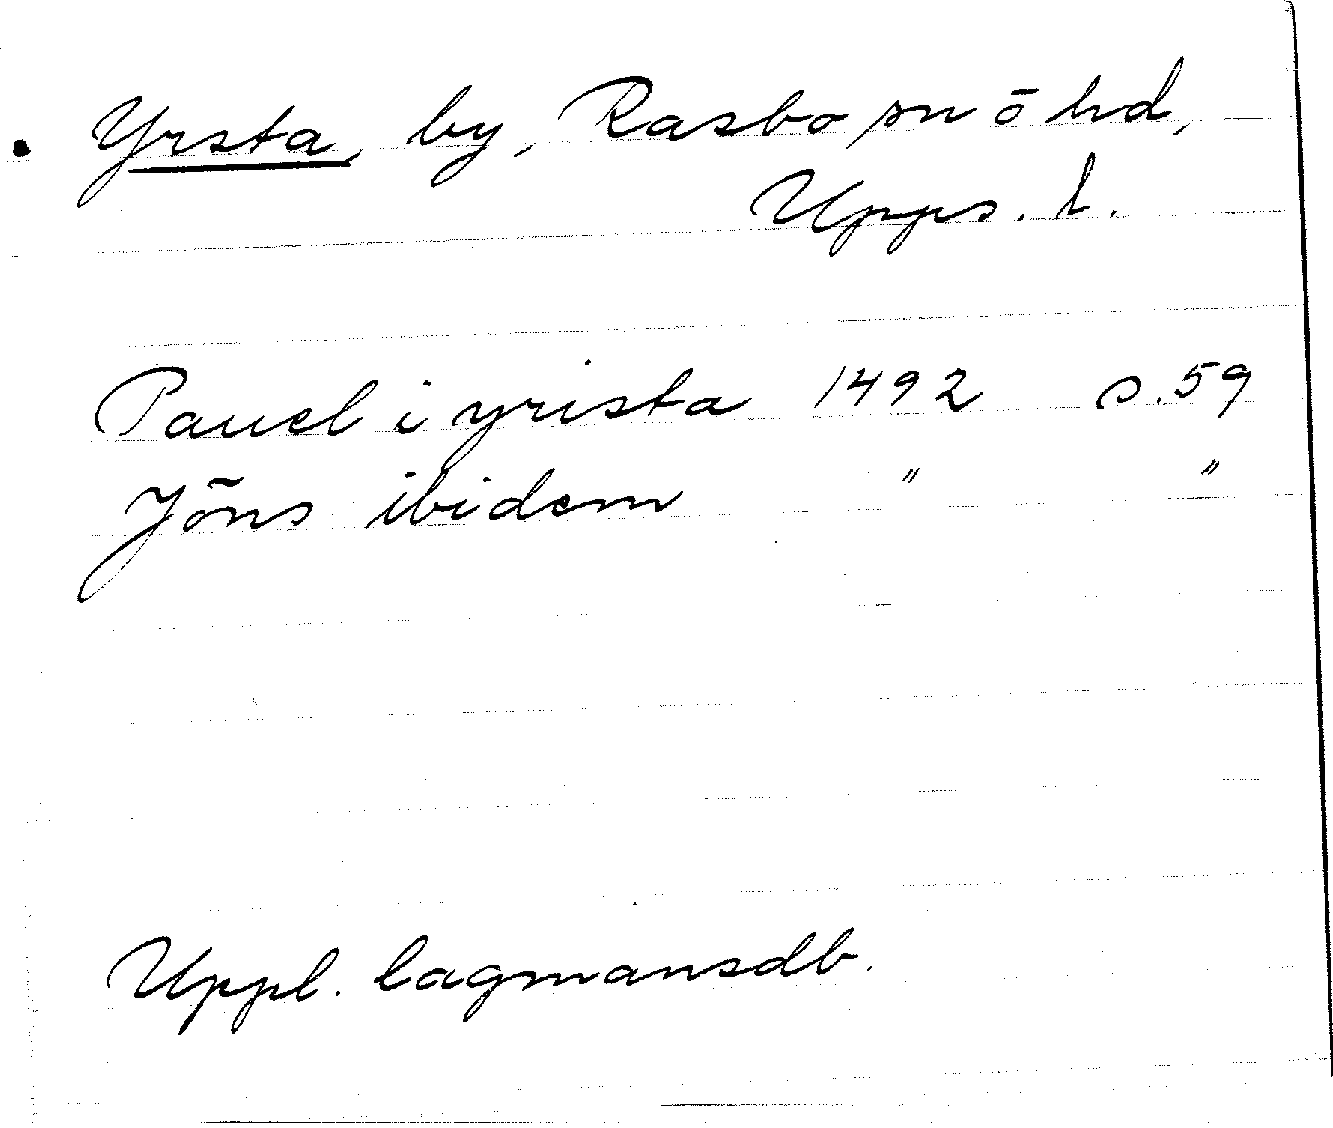 Yrsta, by, Rasbo sn ō hd,
Upps. l.
Pauel i yrista 1492 s. 59
Jöns ibidem " "
Uppl. lagmansdb.